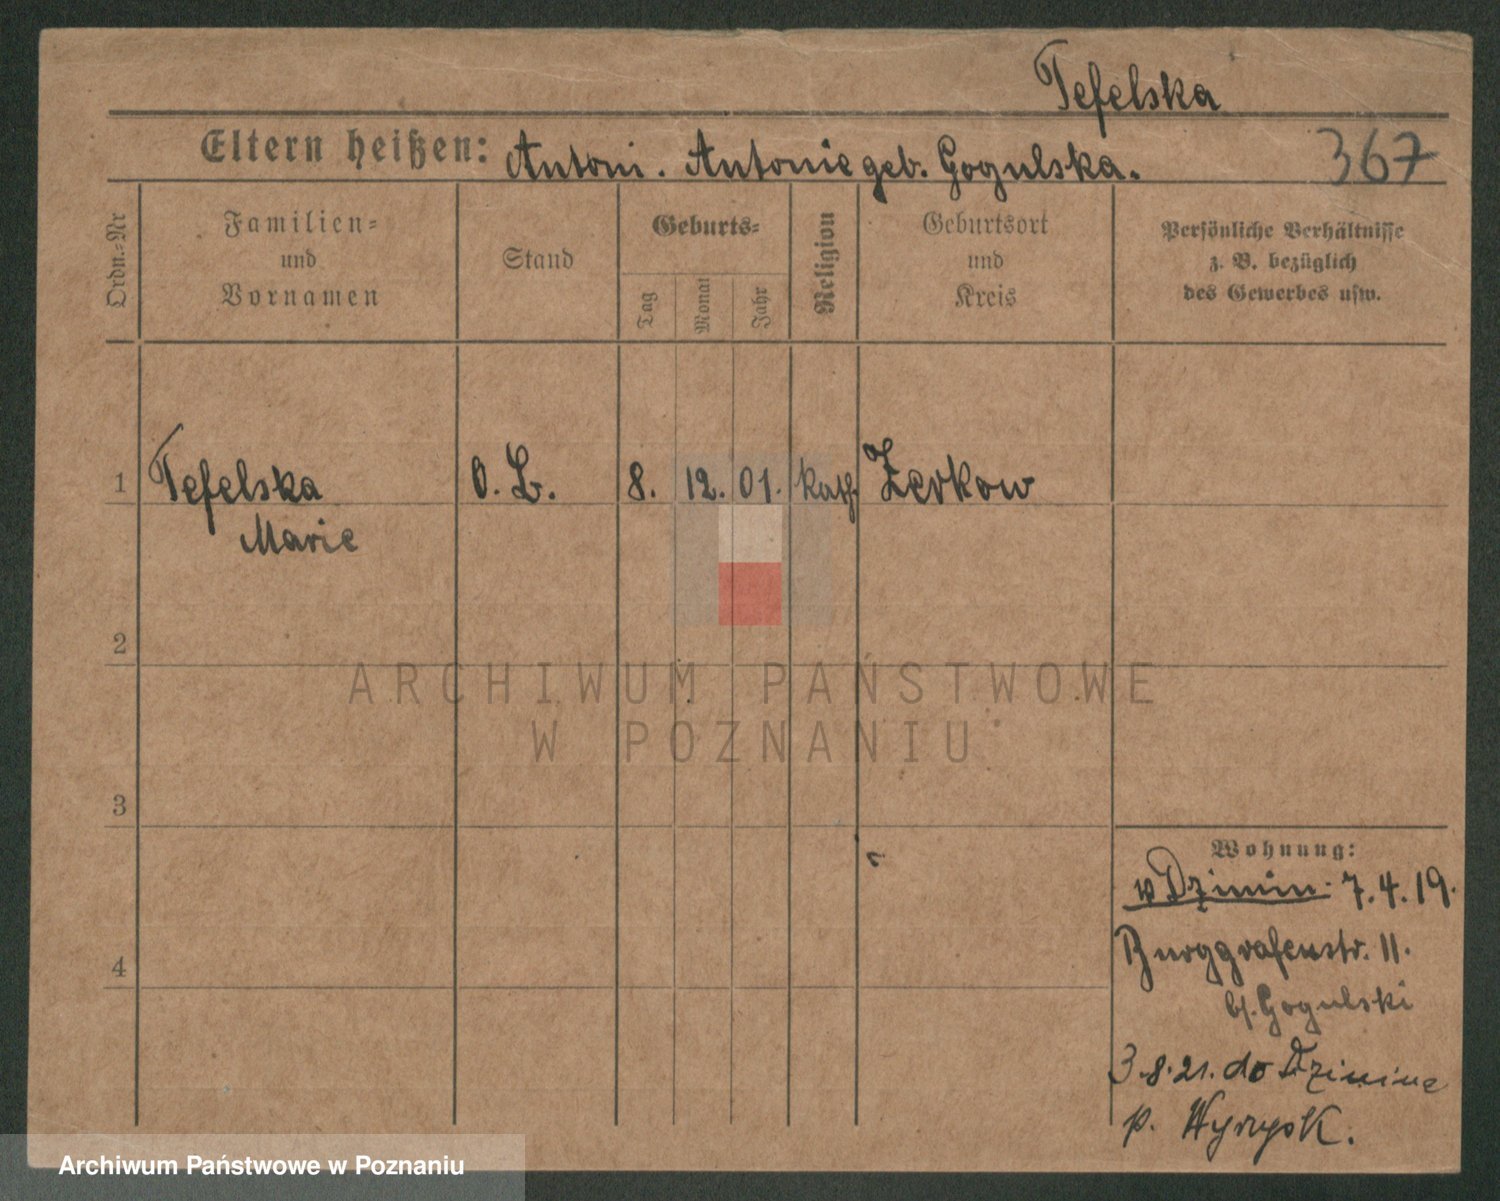 Tefelska
Eltern heißen: Antoni. Antonie geb. Gogulska.
367
Ordn.=Nr
Familien=
und
Vornamen
Stand
Geburts=
Tag
Monat
Jahr
Religion
Geburtsort
und
Kreis
Persönliche Verhältnisse
z. B. bezüglich
des Gewerbes usw.
1 Tefelska O. B. 8. 12. 01. kath. Zerkow
Marie
2
ARCHIWUM PAŃSTWOWE
W POZNANIU
3
Wohnung:
Dzimin 7.4.19.
Burggrafenstr. 11.
4
b/. Gogulski
3.8.21. do
p. Wyrzysk.
Archiwum Państwowe w Poznaniu